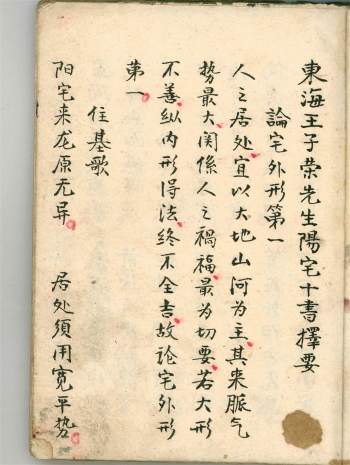 東海王子荣先生陽宅十書擇要
論宅外形第一
人之居处宜以大地山河为主其来脈气
势最大関係人之禍福最为切要若大形
不善纵内形得法终不全吉故论宅外形
第一
住基歌
阳宅来龙原无异 居处须用宽平势